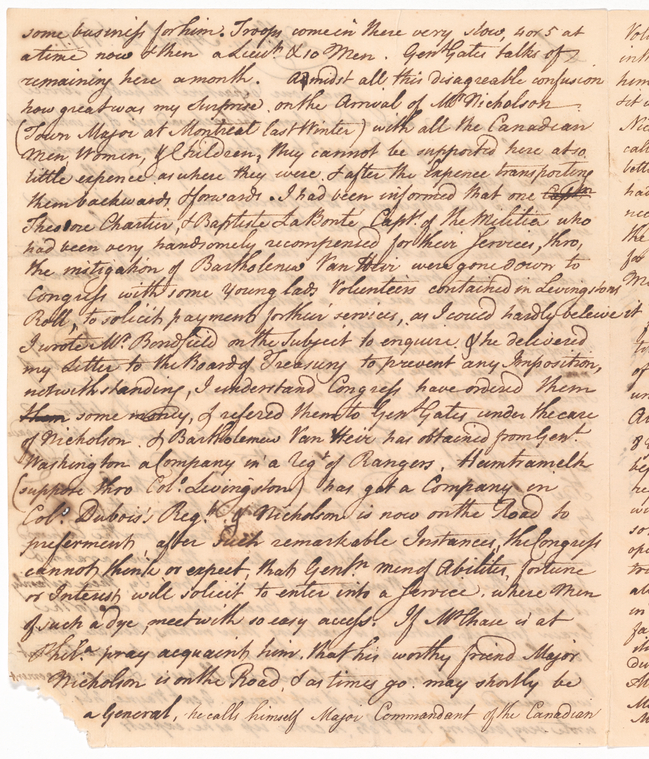 some business for him. Troops come in there very slow, 4 or 5 at
a time now & then a Lieut. & 10 Men. Genl. Gates talks of
remaining here a month. Amidst all this disagreable confusion
how great was my Surprise on the Arrival of Mr. Nicholson
(Town Major at Montreal last Winter) with all the Canadian
Men, Women, & Children, they cannot be supported here at so
little expence as where they were, & after the Expence transporting
them backwards & forwards. I had been informed that one
Theodore Chartier, & Baptiste La Bonte, Capt. of the Militia who
had been very handsomely recompensed for their Services, thro,
the mitigation of Bartholemew Van Heir were gone down to
Congress with some young lads Volunteers contained in Livingstons
Roll, to solicit payment for their services, as I could hardly beleive it
I wrote Mr. Bondfield on the Subject to enquire, & he delivered
my Letter to the Board of Treasury to prevent any Imposition,
notwithstanding, I understand Congress have ordered them
them some money, & refered them to Genl. Gates under the care
of Nicholson. & Bartholemew Van Heir has obtained from Genl.
Washington a Company in a Regt. of Rangers. Hamtramck
(suppose thro Colo. Livingston) has got a Company in
Colo. Dubois's Regt. & Nicholson is now on the Road to
preferment after such remarkable Instances, the Congress
cannot think or expect, that Gentn. men of Abilities, fortune
or Interest, will solicit to enter into a Service, where Men
of such a dye, meet with so easy access. If Mr. is at
Phila. pray acquaint him, that his worthy friend Major
Nicholson is on the Road, & as times go may shortly be
a General, he calls himself Major Commandant of the Canadian